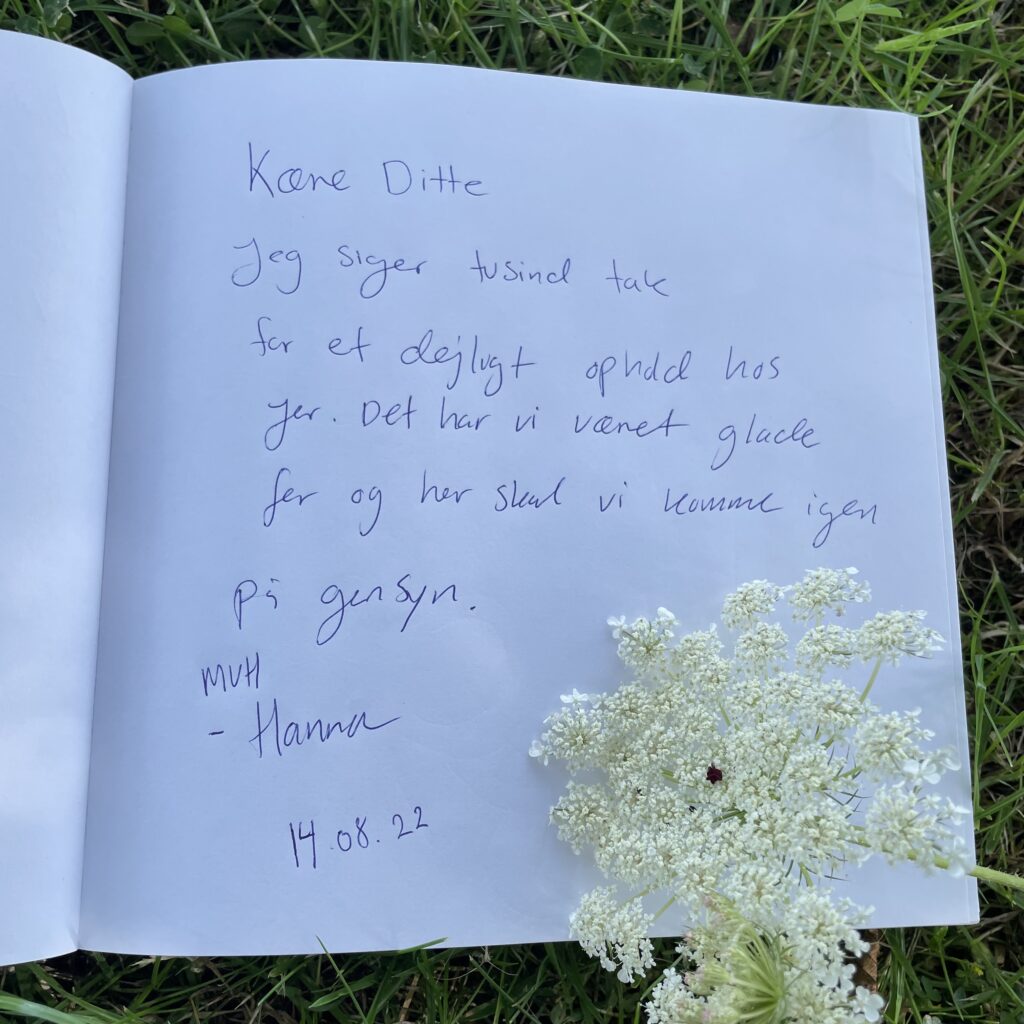 Kære Ditte
Jeg siger tusind tak
for et dejligt ophold hos
jer. Det har vi været glade
for og her skal vi komme igen
på gensyn.
MVH
- Hanna
14.08.22